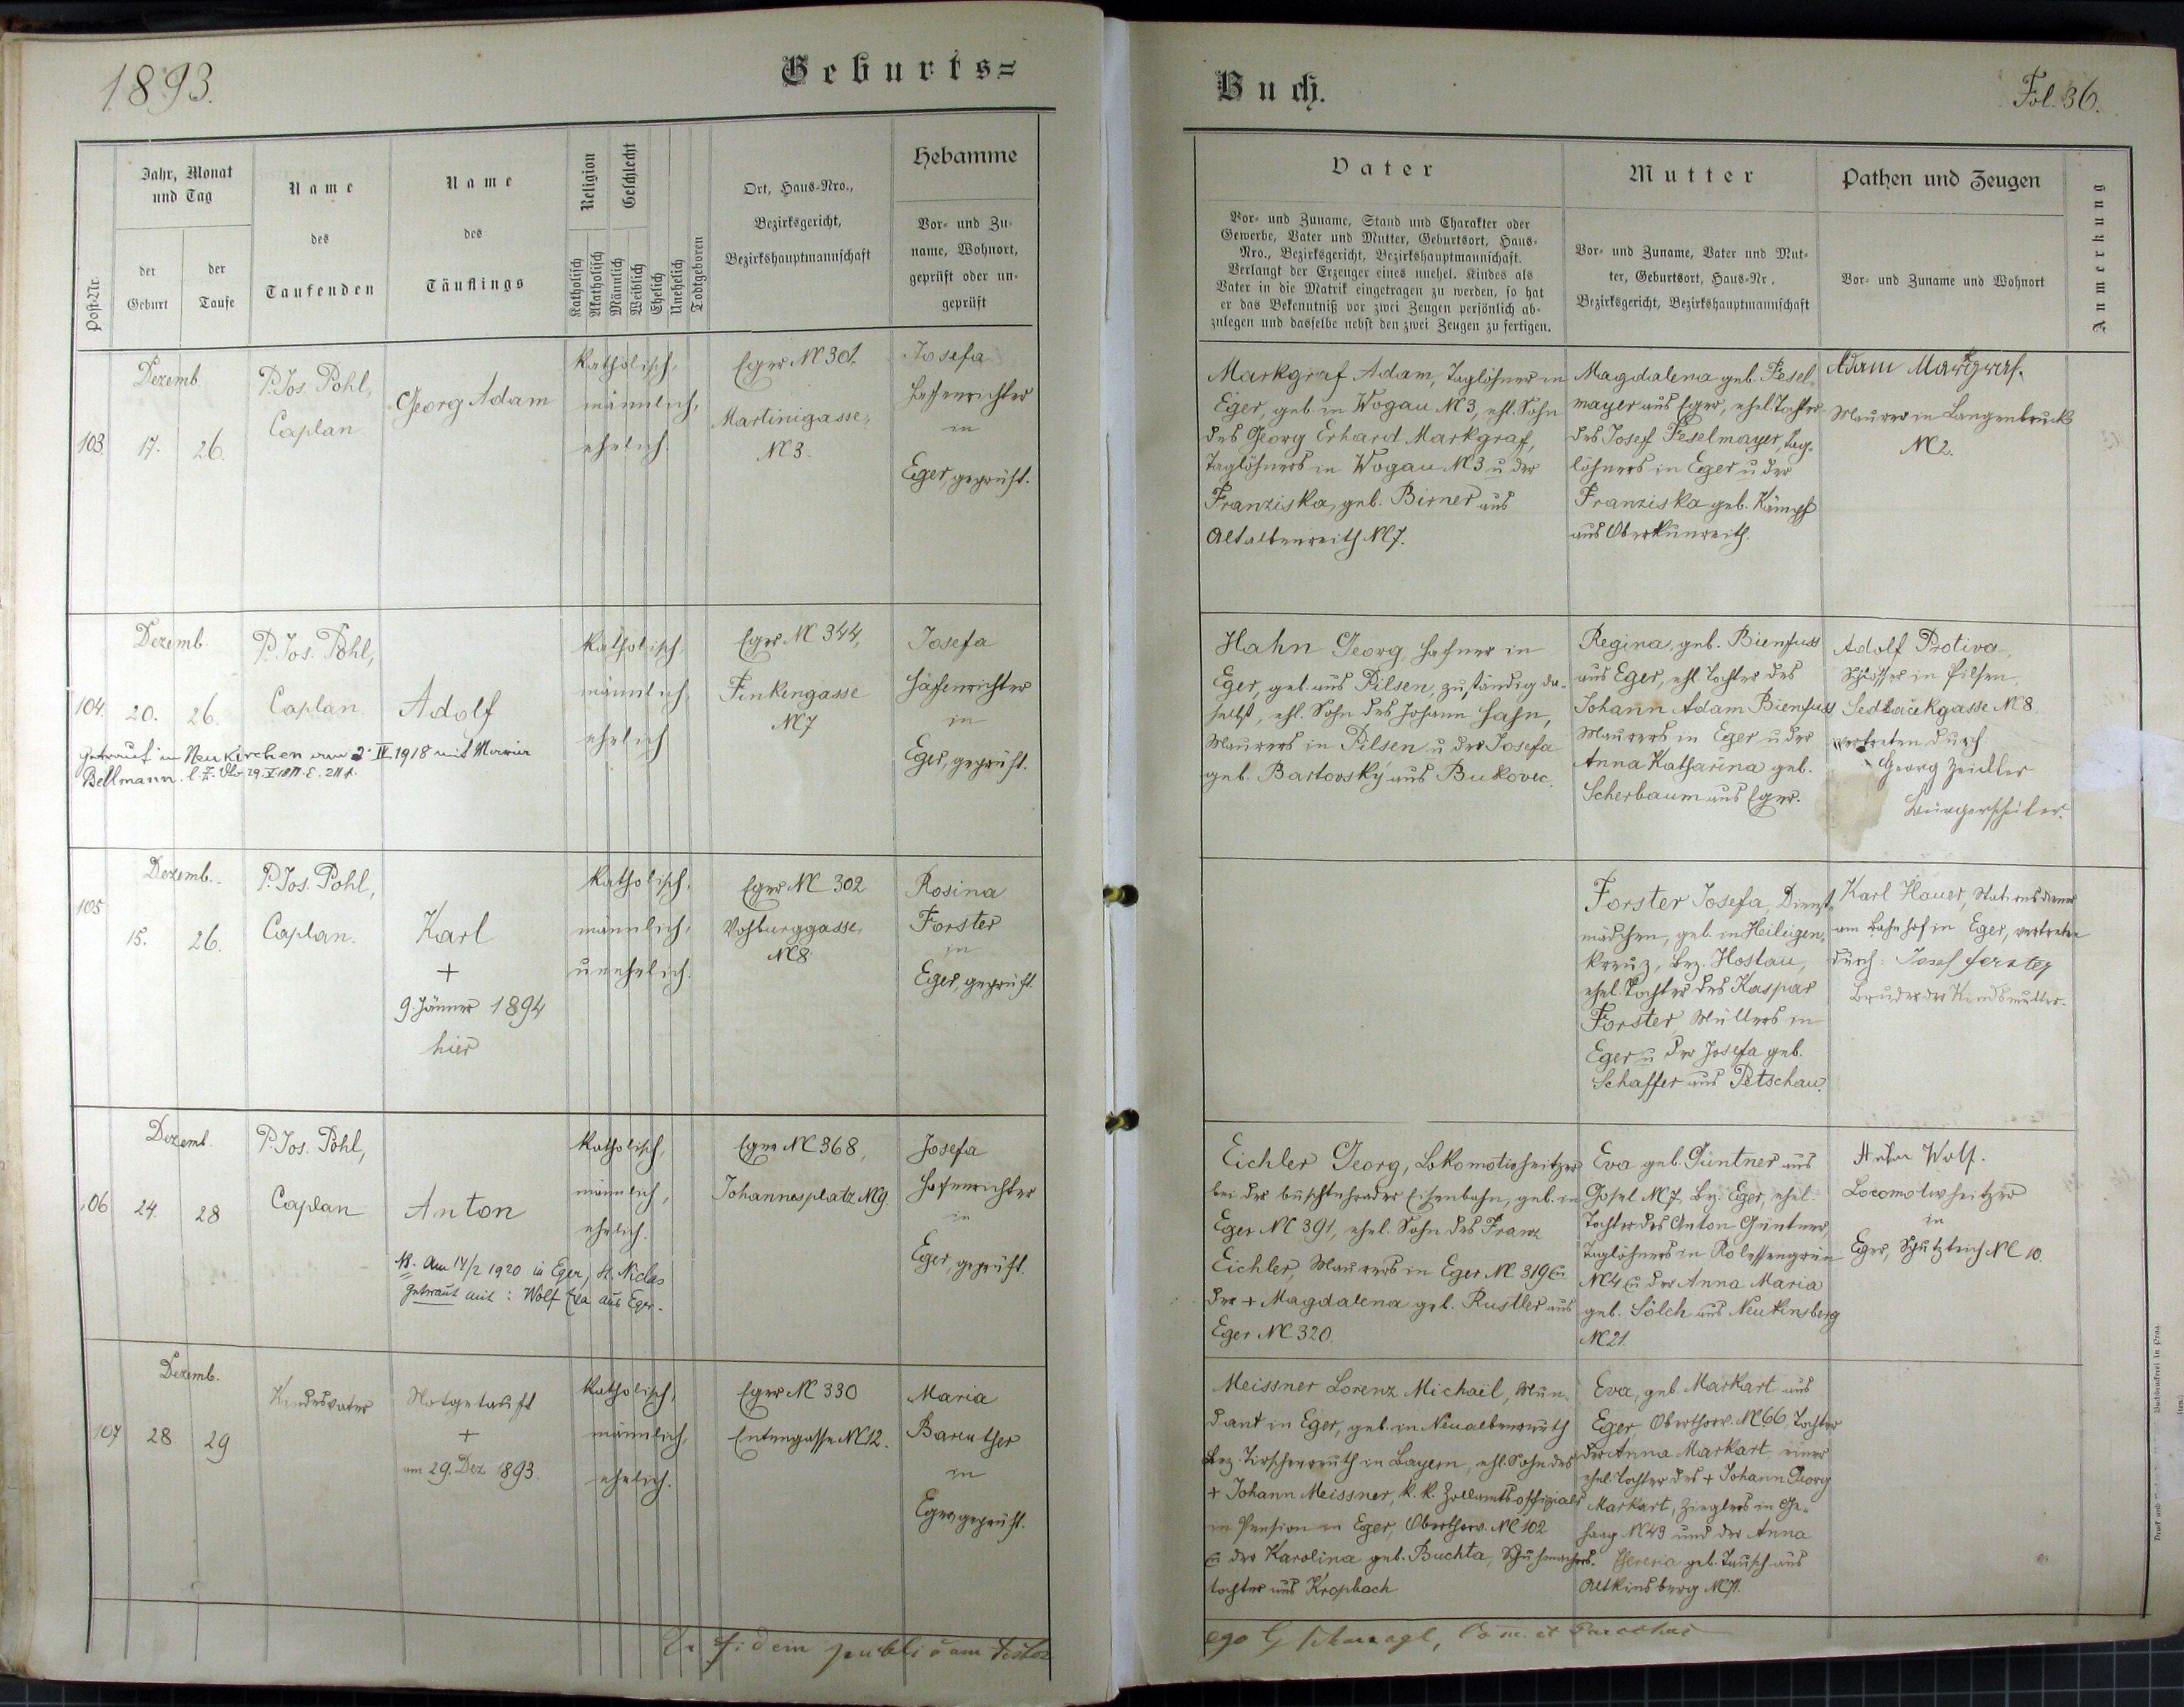 1893.
Geburts=
Jahr, Monat
und Tag
Name
des
Taufenden
Name
des
Täuflings
Religion
Geschlecht
Ort, Haus-Nro.,
Bezirksgericht,
Bezirkshauptmannschaft
Hebamme
Vor- und Zu-
name, Wohnort,
geprüft oder un-
geprüft
Post-Nr.
der
Geburt
der
Taufe
Katholisch
Akatholisch
Männlich
Weiblich
Ehelich
Unehelich
Todtgeboren
103
Dezemb.
17. 26.
P. Jos. Pohl,
Caplan
Georg Adam
Katholisch,
männlich,
ehelich.
Eger N 301.
Martinigasse,
N 3.
Josefa
Hafenrichter
in
Eger, geprüft.
104.
Dezemb.
20. 26.
P. Jos. Pohl,
Caplan
Adolf
Katholisch,
männlich,
ehelich
Eger N 344,
Finkengasse
N 7
Josefa
Hafenrichter
in
Eger, geprüft.
Getraut in Neukirchen am 2. IV 1918 mit Maria
Bellmann.
105
Dezemb.
15. 26.
P. Jos. Pohl,
Caplan.
Karl
+
9. Jänner 1894
hier
Katholisch,
männlich,
unehelich.
Eger N 302
Vohburggasse,
N 8
Rosina
Forster
in
Eger, geprüft.
106
Dezemb.
24. 28
P. Jos. Pohl,
Caplan
Anton
NB. Am 17/2 1920 in Eger, St. Niclas
getraut mit: Wolf Eva aus Eger.
Katholisch,
männlich,
ehelich.
Eger N 368,
Johannesplatz N 9.
Josefa
Hafenrichter
in
Eger, geprüft.
107
Dezemb.
28 29
Kindesvater
Notgetauft
+
am 29. Dez 1893.
Katholisch,
männlich,
ehelich.
Eger N 330
Entengasse N 12.
Maria
Bareuther
in
Eger geprüft.
In fidem publicam testor
Buch.
Fol. 36.
Vater
Vor- und Zuname, Stand und Charakter oder
Gewerbe, Vater und Mutter, Geburtsort, Haus-
Nro., Bezirksgericht, Bezirkshauptmannschaft.
Verlangt der Erzeuger eines unehel. Kindes als
Vater in die Matrik eingetragen zu werden, so hat
er das Bekenntniß vor zwei Zeugen persönlich ab-
zulegen und dasselbe nebst den zwei Zeugen zu fertigen.
Mutter
Vor- und Zuname, Vater und Mut-
ter, Geburtsort, Haus-Nr.,
Bezirksgericht, Bezirkshauptmannschaft
Pathen und Zeugen
Vor- und Zuname und Wohnort
Anmerkung
Markgraf Adam, Taglöhner in
Eger, geb. in Wogau N 3, ehl. Sohn
des Georg Erhard Markgraf,
Taglöhners in Wogau N 3 u der
Franziska, geb. Birner aus
Altalbenreith N 7.
Magdalena geb. Fesel-
mayer aus Eger, ehel. Tochter
des Josef Feselmayer, Tag-
löhners in Eger u der
Franziska geb. Kämpf
aus Oberkunreith.
Adam Markgraf.
Maurer in Langenbruck
N 2.
Hahn Georg, Hafner in
Eger, geb. aus Pilsen, zuständig da-
selbst, ehl. Sohn des Johann Hahn,
Maurers in Pilsen u der Josefa
geb. Bartovský aus Bukovec.
Regina, geb. Bienfuss
aus Eger, ehl. Tochter des
Johann Adam Bienfuss
Maurers in Eger u der
Anna Katharina geb.
Scherbaum aus Eger.
Adolf Protiva,
Schlosser in Pilsen,
Sedláčekgasse N 8
vertreten durch
Georg Zeidler
Bürgerschüler.
Forster Josefa, Dienst-
mädchen, geb. in Heiligen-
kreuz, Bez. Hostau,
ehel. Tochter des Kaspar
Forster, Müllers in
Eger u der Josefa geb.
Schaffer aus Petschau.
Karl Hauer, Stationsdiener
am Bahnhof in Eger, vertreten
durch: Josef Forster
Bruder der Kindsmutter.
Eichler Georg, Lokomotivheitzer
bei der buschtehrader Eisenbahn, geb. in
Eger N 391, ehel. Sohn des Franz
Eichler, Maurers in Eger N 319 u
der + Magdalena geb. Rustler aus
Eger N 320.
Eva geb. Güntner aus
Gosel N 7, Bez. Eger, ehel
Tochter des Anton Güntner,
Taglöhners in Rolessengrün
N 4 u der Anna Maria
geb. Sölch aus Neukinsberg
N 21.
Anton Wolf.
Locomotivheitzer
in
Eger, Schutzteich N 10.
Meissner Lorenz Michael, Mun-
dant in Eger, geb. in Neualbenreuth
Bez. Tirschenreuth in Bayern, ehl. Sohn des
+ Johann Meissner, k. k. Zollamtsoffizials
in Pension in Eger, Oberthorv. N 102
u der Karolina geb. Buchta, Schuhmachers-
tochter aus Kropbach
Eva, geb. Markart aus
Eger, Oberthorv. N 66, Tochter
der Anna Markart, einer
ehel. Tochter des + Johann Georg
Markart, Zieglers in Ge-
haag N 43 und der Anna
Theresia geb. Tausch aus
Altkinsberg N 71.
ego